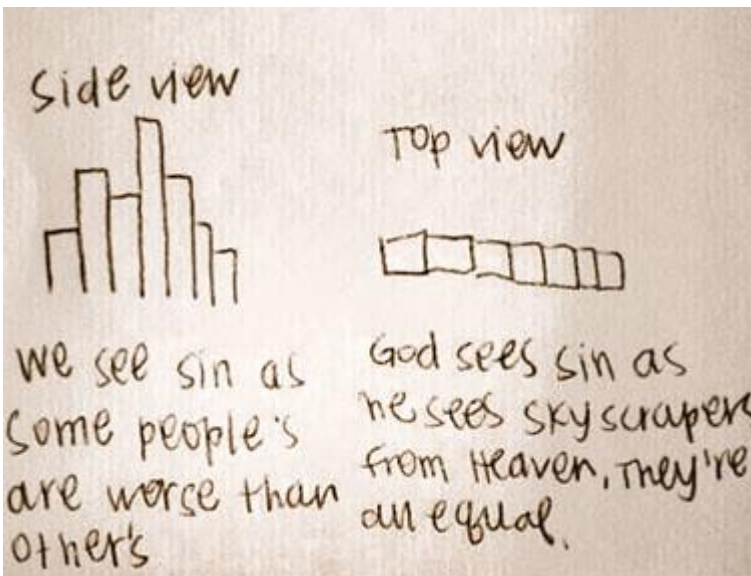 Side view
Top view
we see sin as
some people's
are worse than
other's
God sees sin as
he sees skyscrapers
from Heaven, They're
all equal.